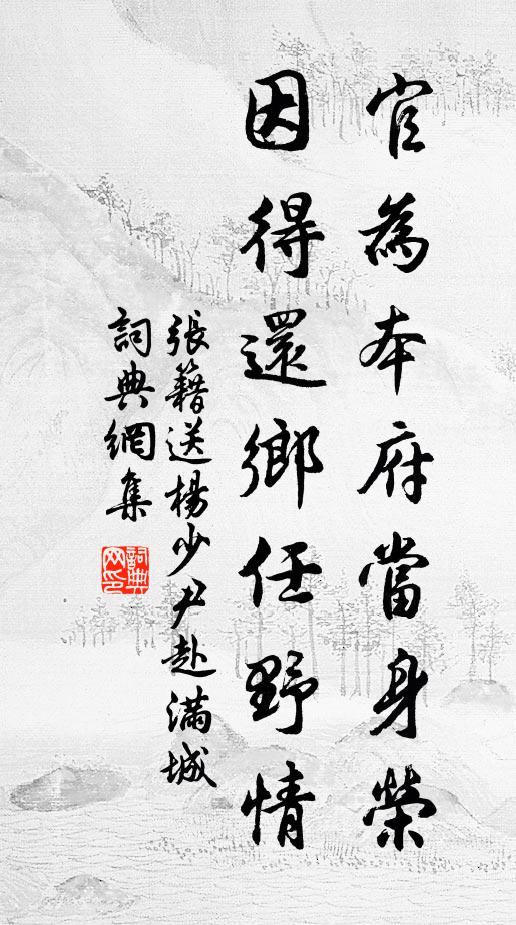 官為本府當身榮
因得還鄉任野情
張籍送楊少尹赴滿城
詞典網集
詞典网印